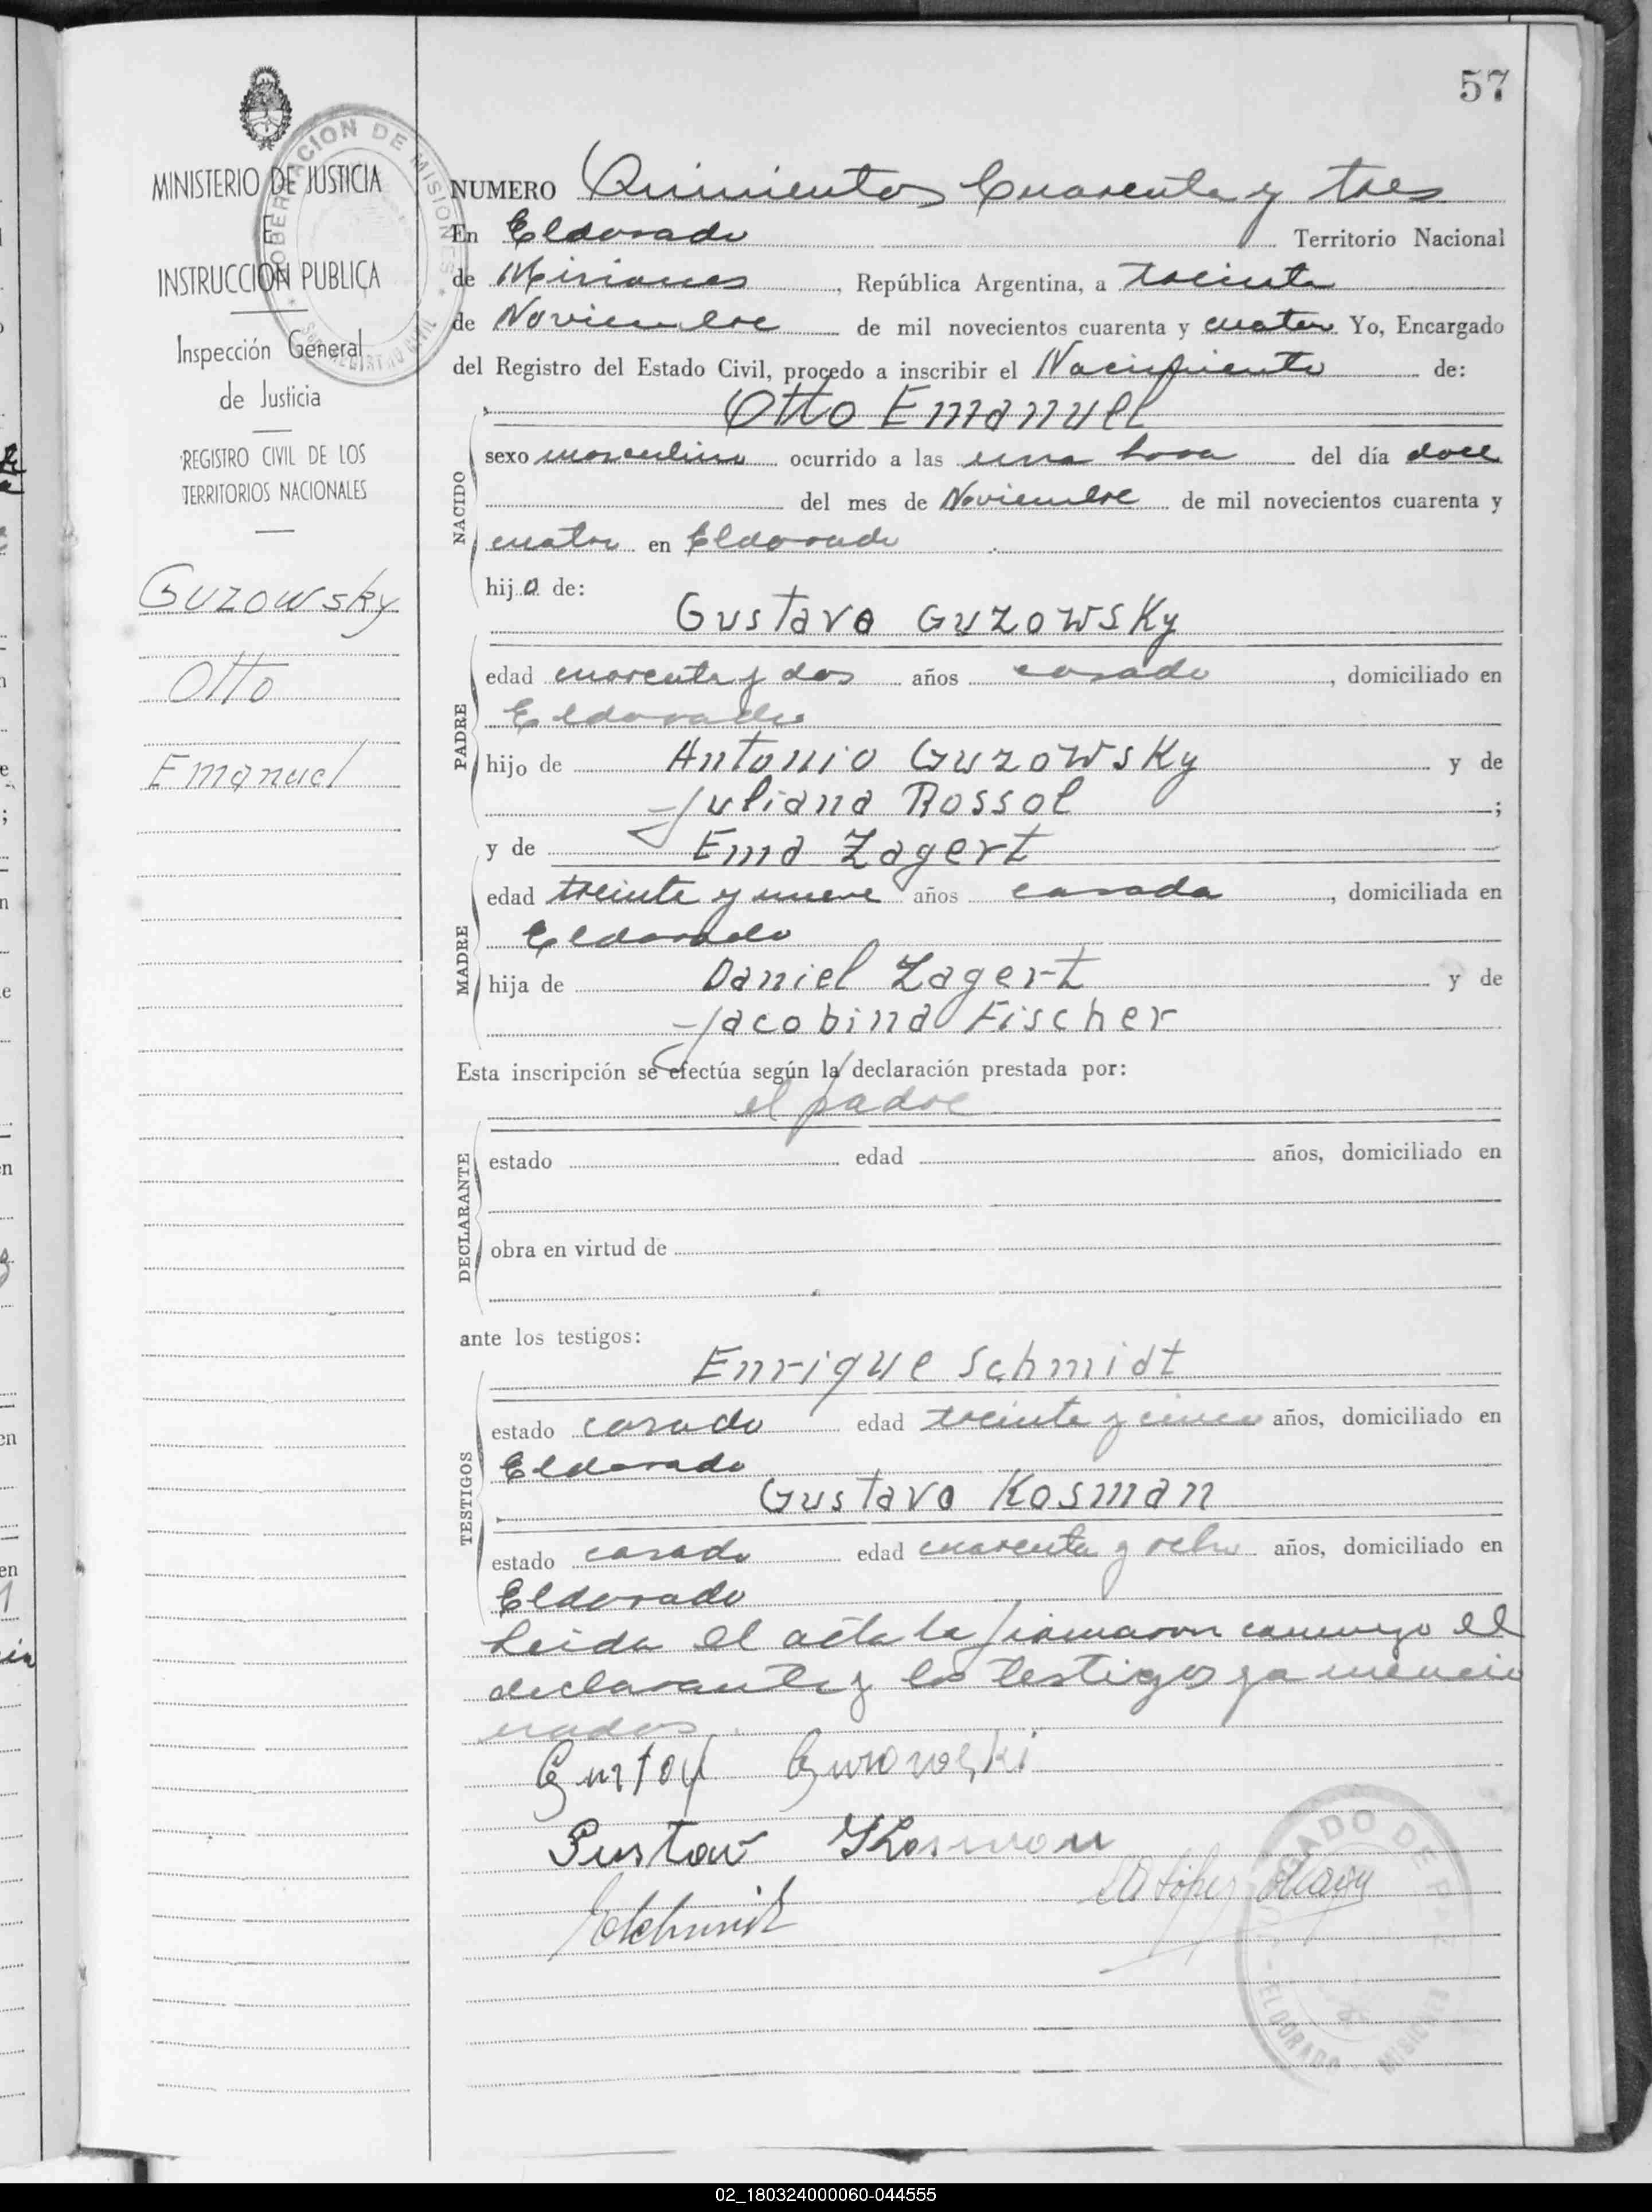 57
MINISTERIO DE JUSTICIA
E
INSTRUCCION PUBLICA
Inspección General
de Justicia
REGISTRO CIVIL DE LOS
TERRITORIOS NACIONALES
GOBERNACION DE MISIONES
REGISTRO CIVIL
Guzowsky
Otto
Emanuel
NUMERO Quinientos Cuarenta y tres
En Eldorado Territorio Nacional
de Misiones, República Argentina, a treinta
de Noviembre de mil novecientos cuarenta y cuatro Yo, Encargado
del Registro del Estado Civil, procedo a inscribir el Nacimiento de:
Otto Emanuel
NACIDO
sexo masculino ocurrido a las una hora del día doce
del mes de Noviembre de mil novecientos cuarenta y
cuatro en Eldorado
hijo de:
Gustavo Guzowsky
PADRE
edad cuarenta y dos años casado, domiciliado en
Eldorado
hijo de Antonio Guzowsky y de
Juliana Rossol;
y de Ema Zagert
MADRE
edad treinta y nueve años casada, domiciliada en
Eldorado
hija de Daniel Zagert y de
Jacobina Fischer
Esta inscripción se efectúa según la declaración prestada por:
el padre
DECLARANTE
estado edad años, domiciliado en
obra en virtud de
ante los testigos:
Enrique Schmidt
TESTIGOS
estado casado edad treinta y cinco años, domiciliado en
Eldorado
Gustavo Kosman
estado casado edad cuarenta y ocho años, domiciliado en
Eldorado
Leida el acta la firmaron conmigo el
declarante y los testigos ya mencio
nados.
Gustav Gurowski
Gustav Kosman
ESchmidt
JUZGADO DE PAZ
ELDORADO MISIONES
02_180324000060-044555